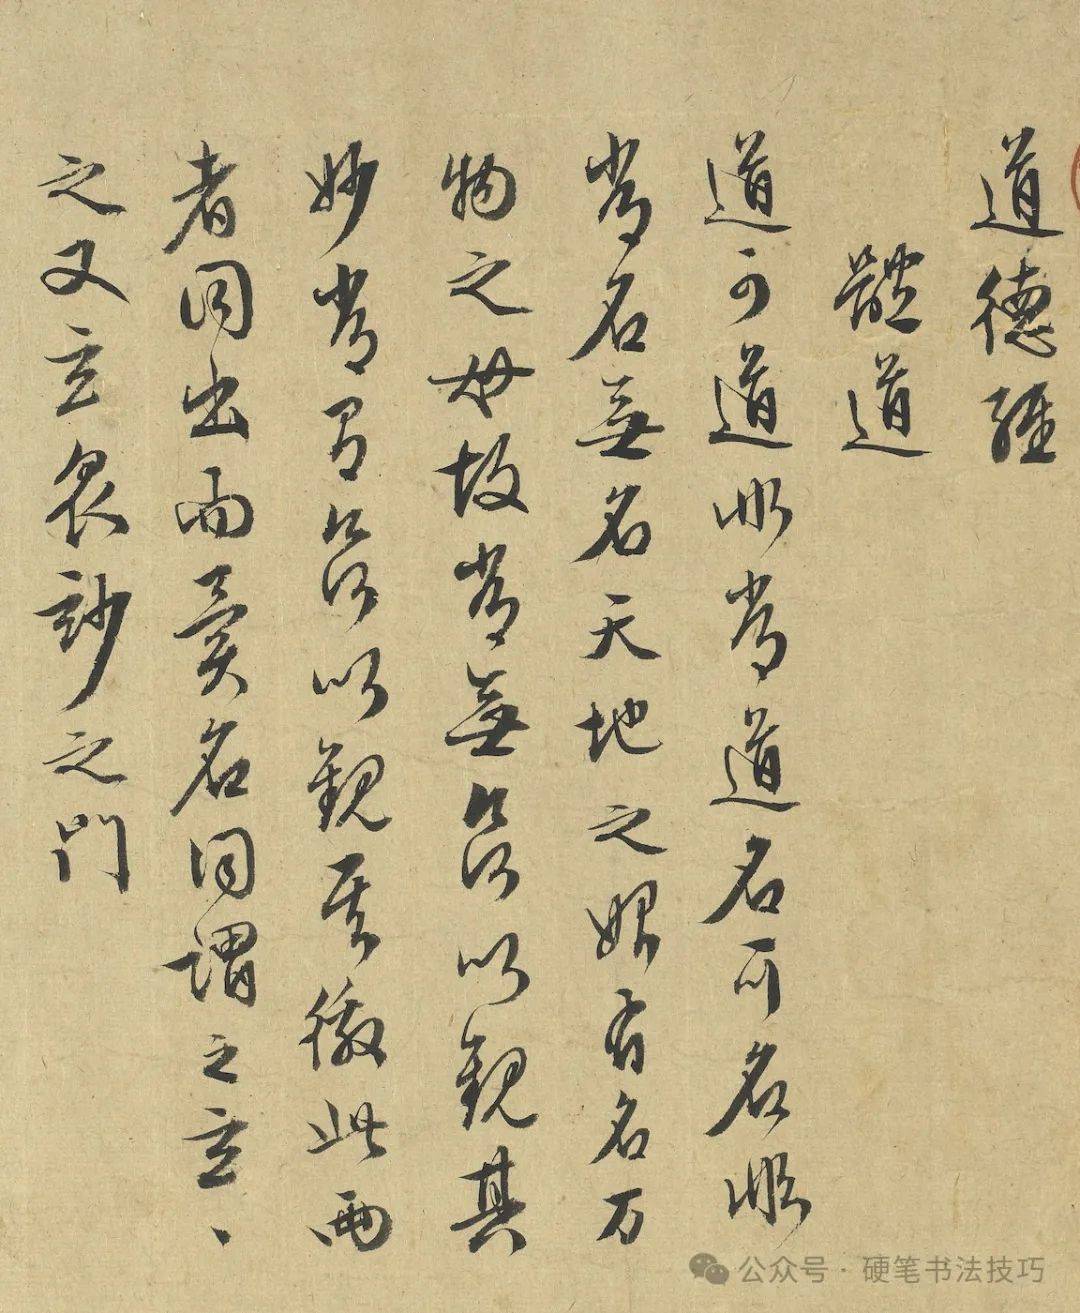 道德經
體道
道可道非常道名可名非
常名無名天地之始有名万
物之母故常無欲以觀其
妙常有欲以觀其徼此兩
者同出而異名同謂之玄、
之又玄衆玅之門
公众号·硬笔书法技巧